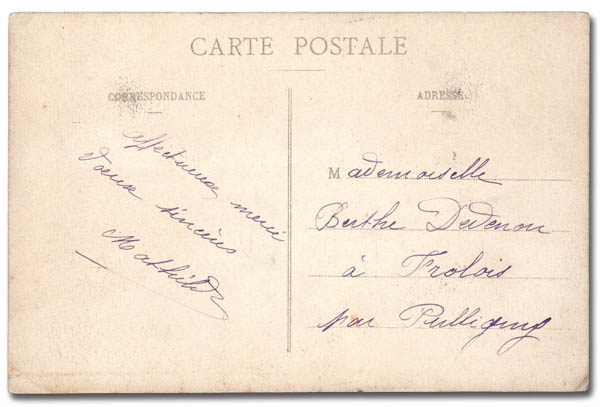 CARTE POSTALE
CORRESPONDANCE
affectueux merci
Voeux sincères
Mathilde
ADRESSE
Mademoiselle
Berthe Dedenon
à Frolois
par Pulligny